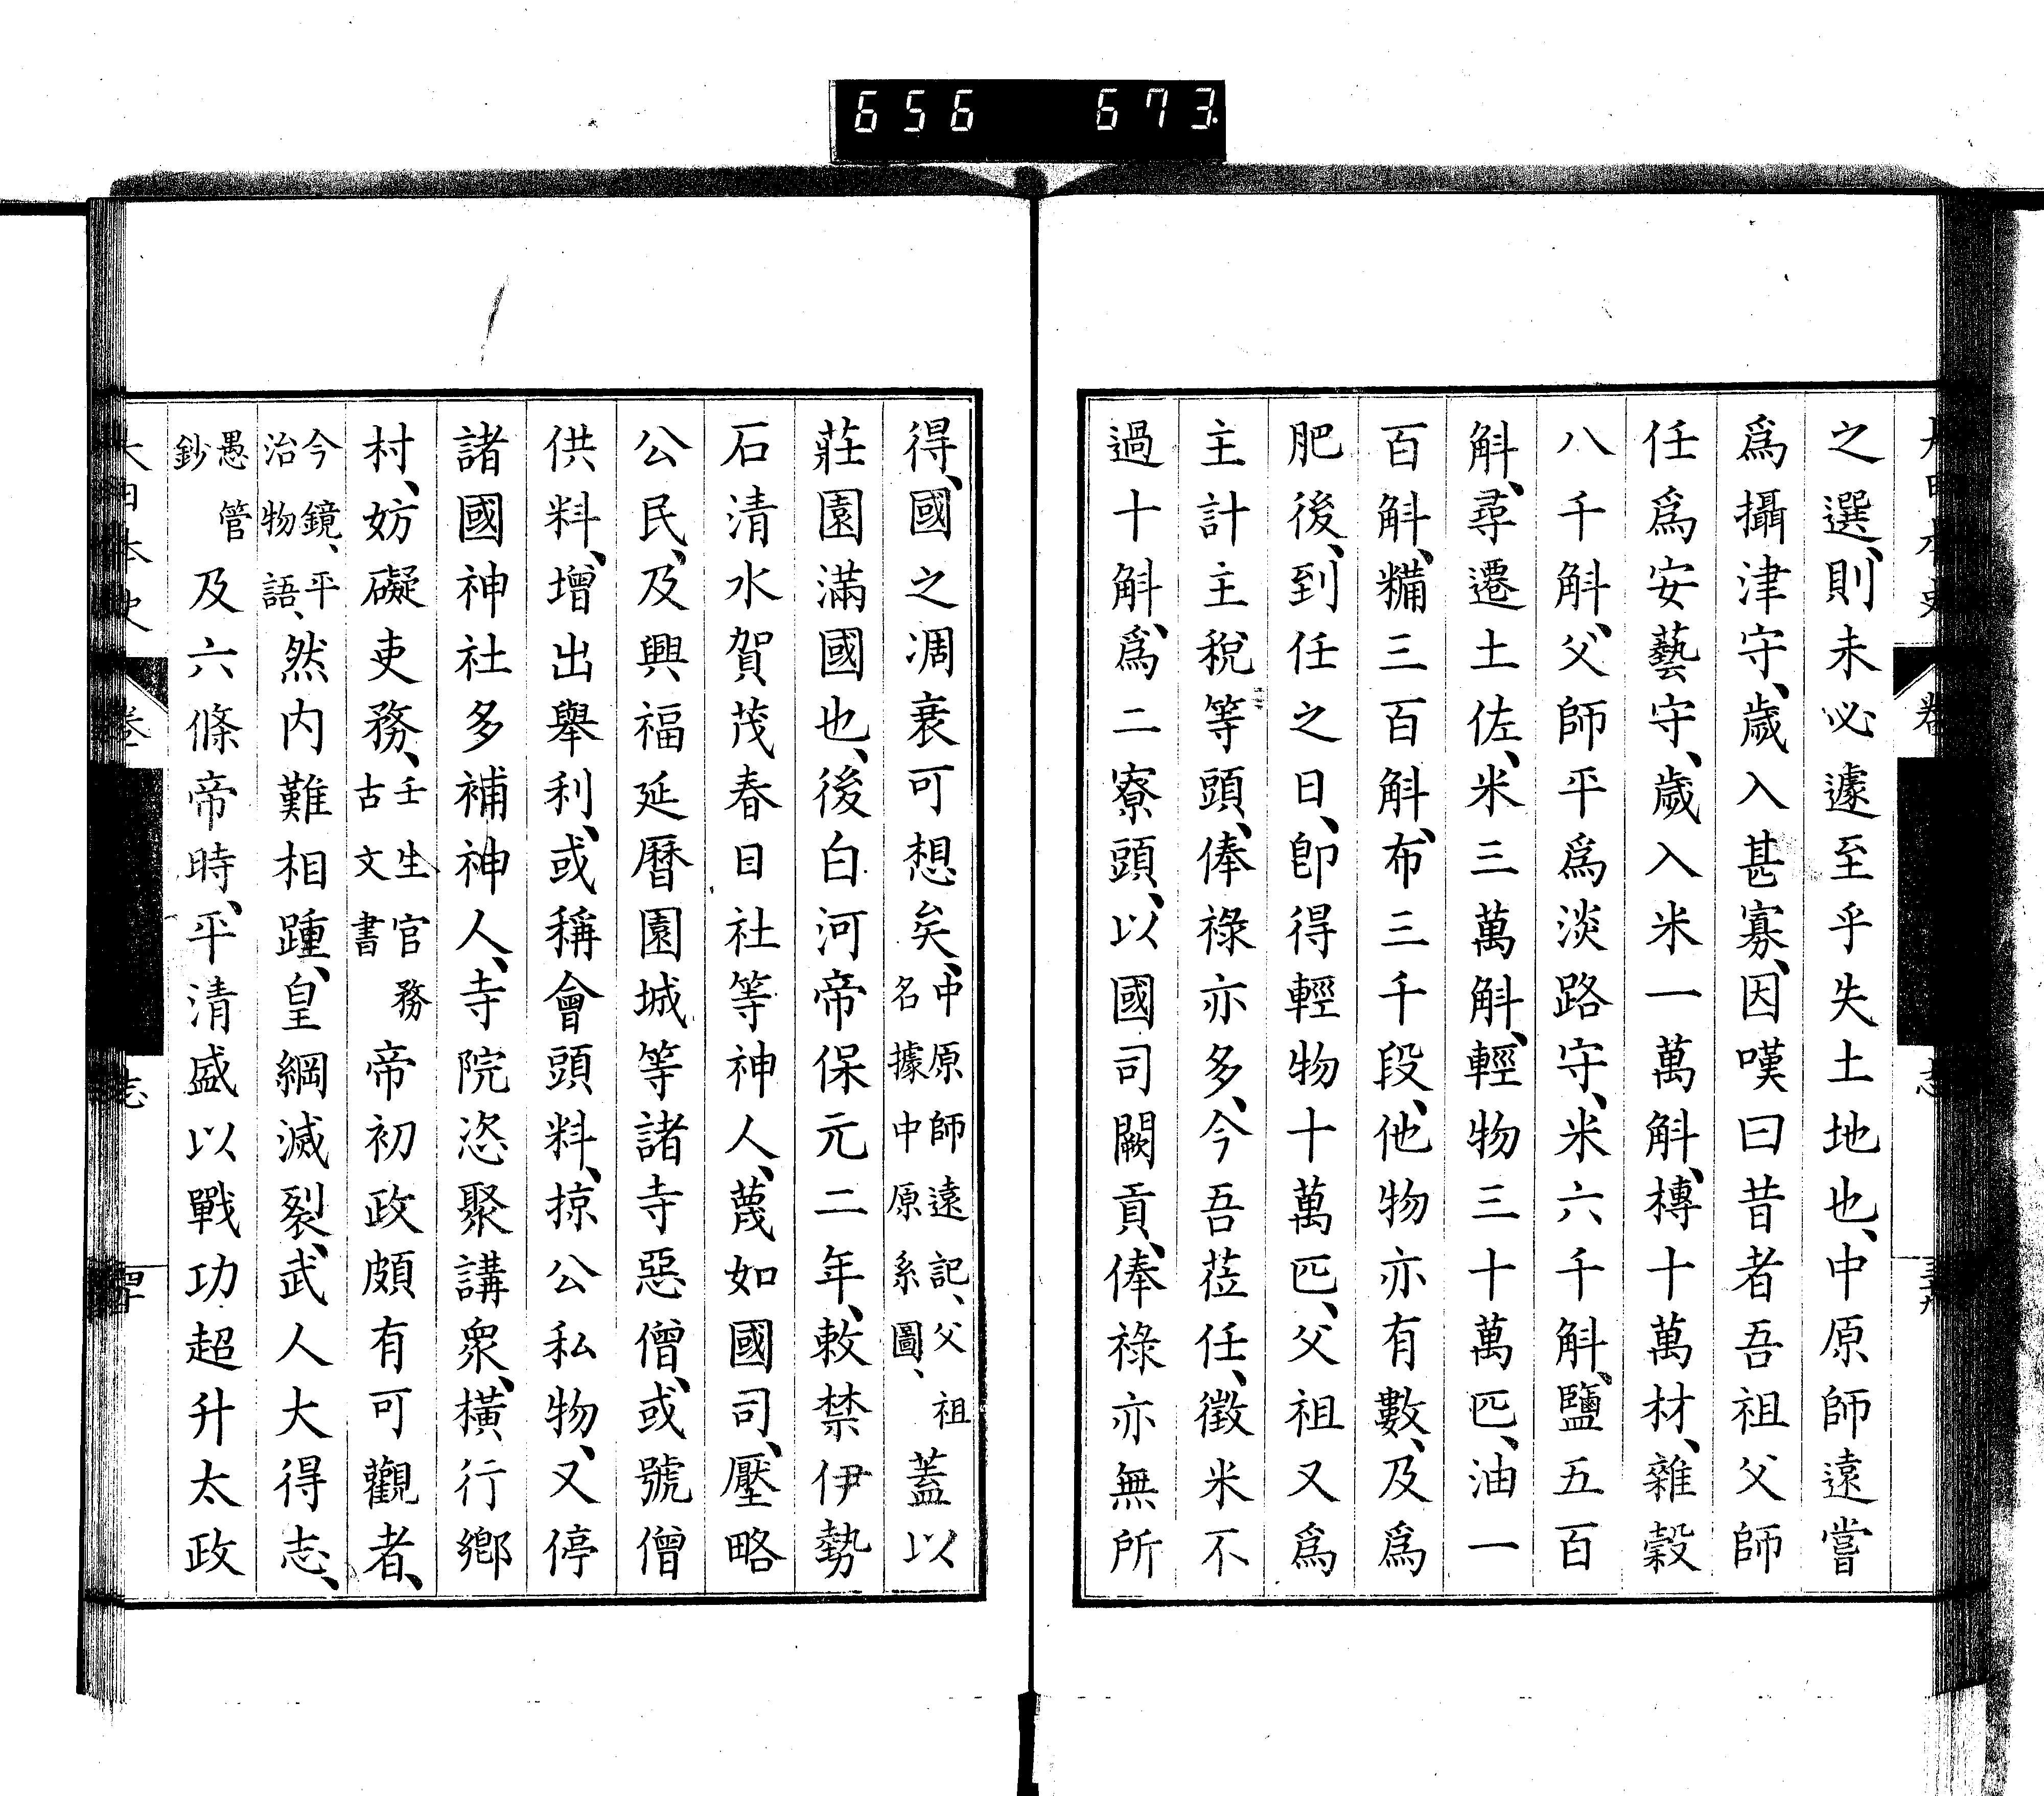 656 673
之選、則未必遽至乎失土地也、中原師遠嘗
爲攝津守、歲入甚寡、因嘆曰昔者吾祖父師
任爲安藝守、歲入米一萬斛、槫十萬材、雜穀
八千斛、父師平爲淡路守、米六千斛、鹽五百
斛、尋遷土佐、米三萬斛、輕物三十萬匹、油一
百斛、糒三百斛、布三千段、他物亦有數、及爲
肥後、到任之日、卽得輕物十萬匹、父祖又爲
主計主稅等頭、俸祿亦多、今吾莅任、徵米不
過十斛、爲二寮頭、以國司闕貢、俸祿亦無所
得、國之凋衰可想矣、中原師遠記、父祖名據中原系圖、蓋以
莊園滿國也、後白河帝保元二年、敕禁伊勢
石清水賀茂春日社等神人、蔑如國司、壓略
公民、及興福延曆園城等諸寺惡僧、或號僧
供料、增出舉利、或稱會頭料、掠公私物、又停
諸國神社多補神人、寺院恣聚講衆、橫行鄉
村、妨礙吏務、壬生官務古文書帝初政頗有可觀者、
今鏡、平治物語、然內難相踵、皇綱滅裂、武人大得志、
愚管鈔及六條帝時、平清盛以戰功超升太政